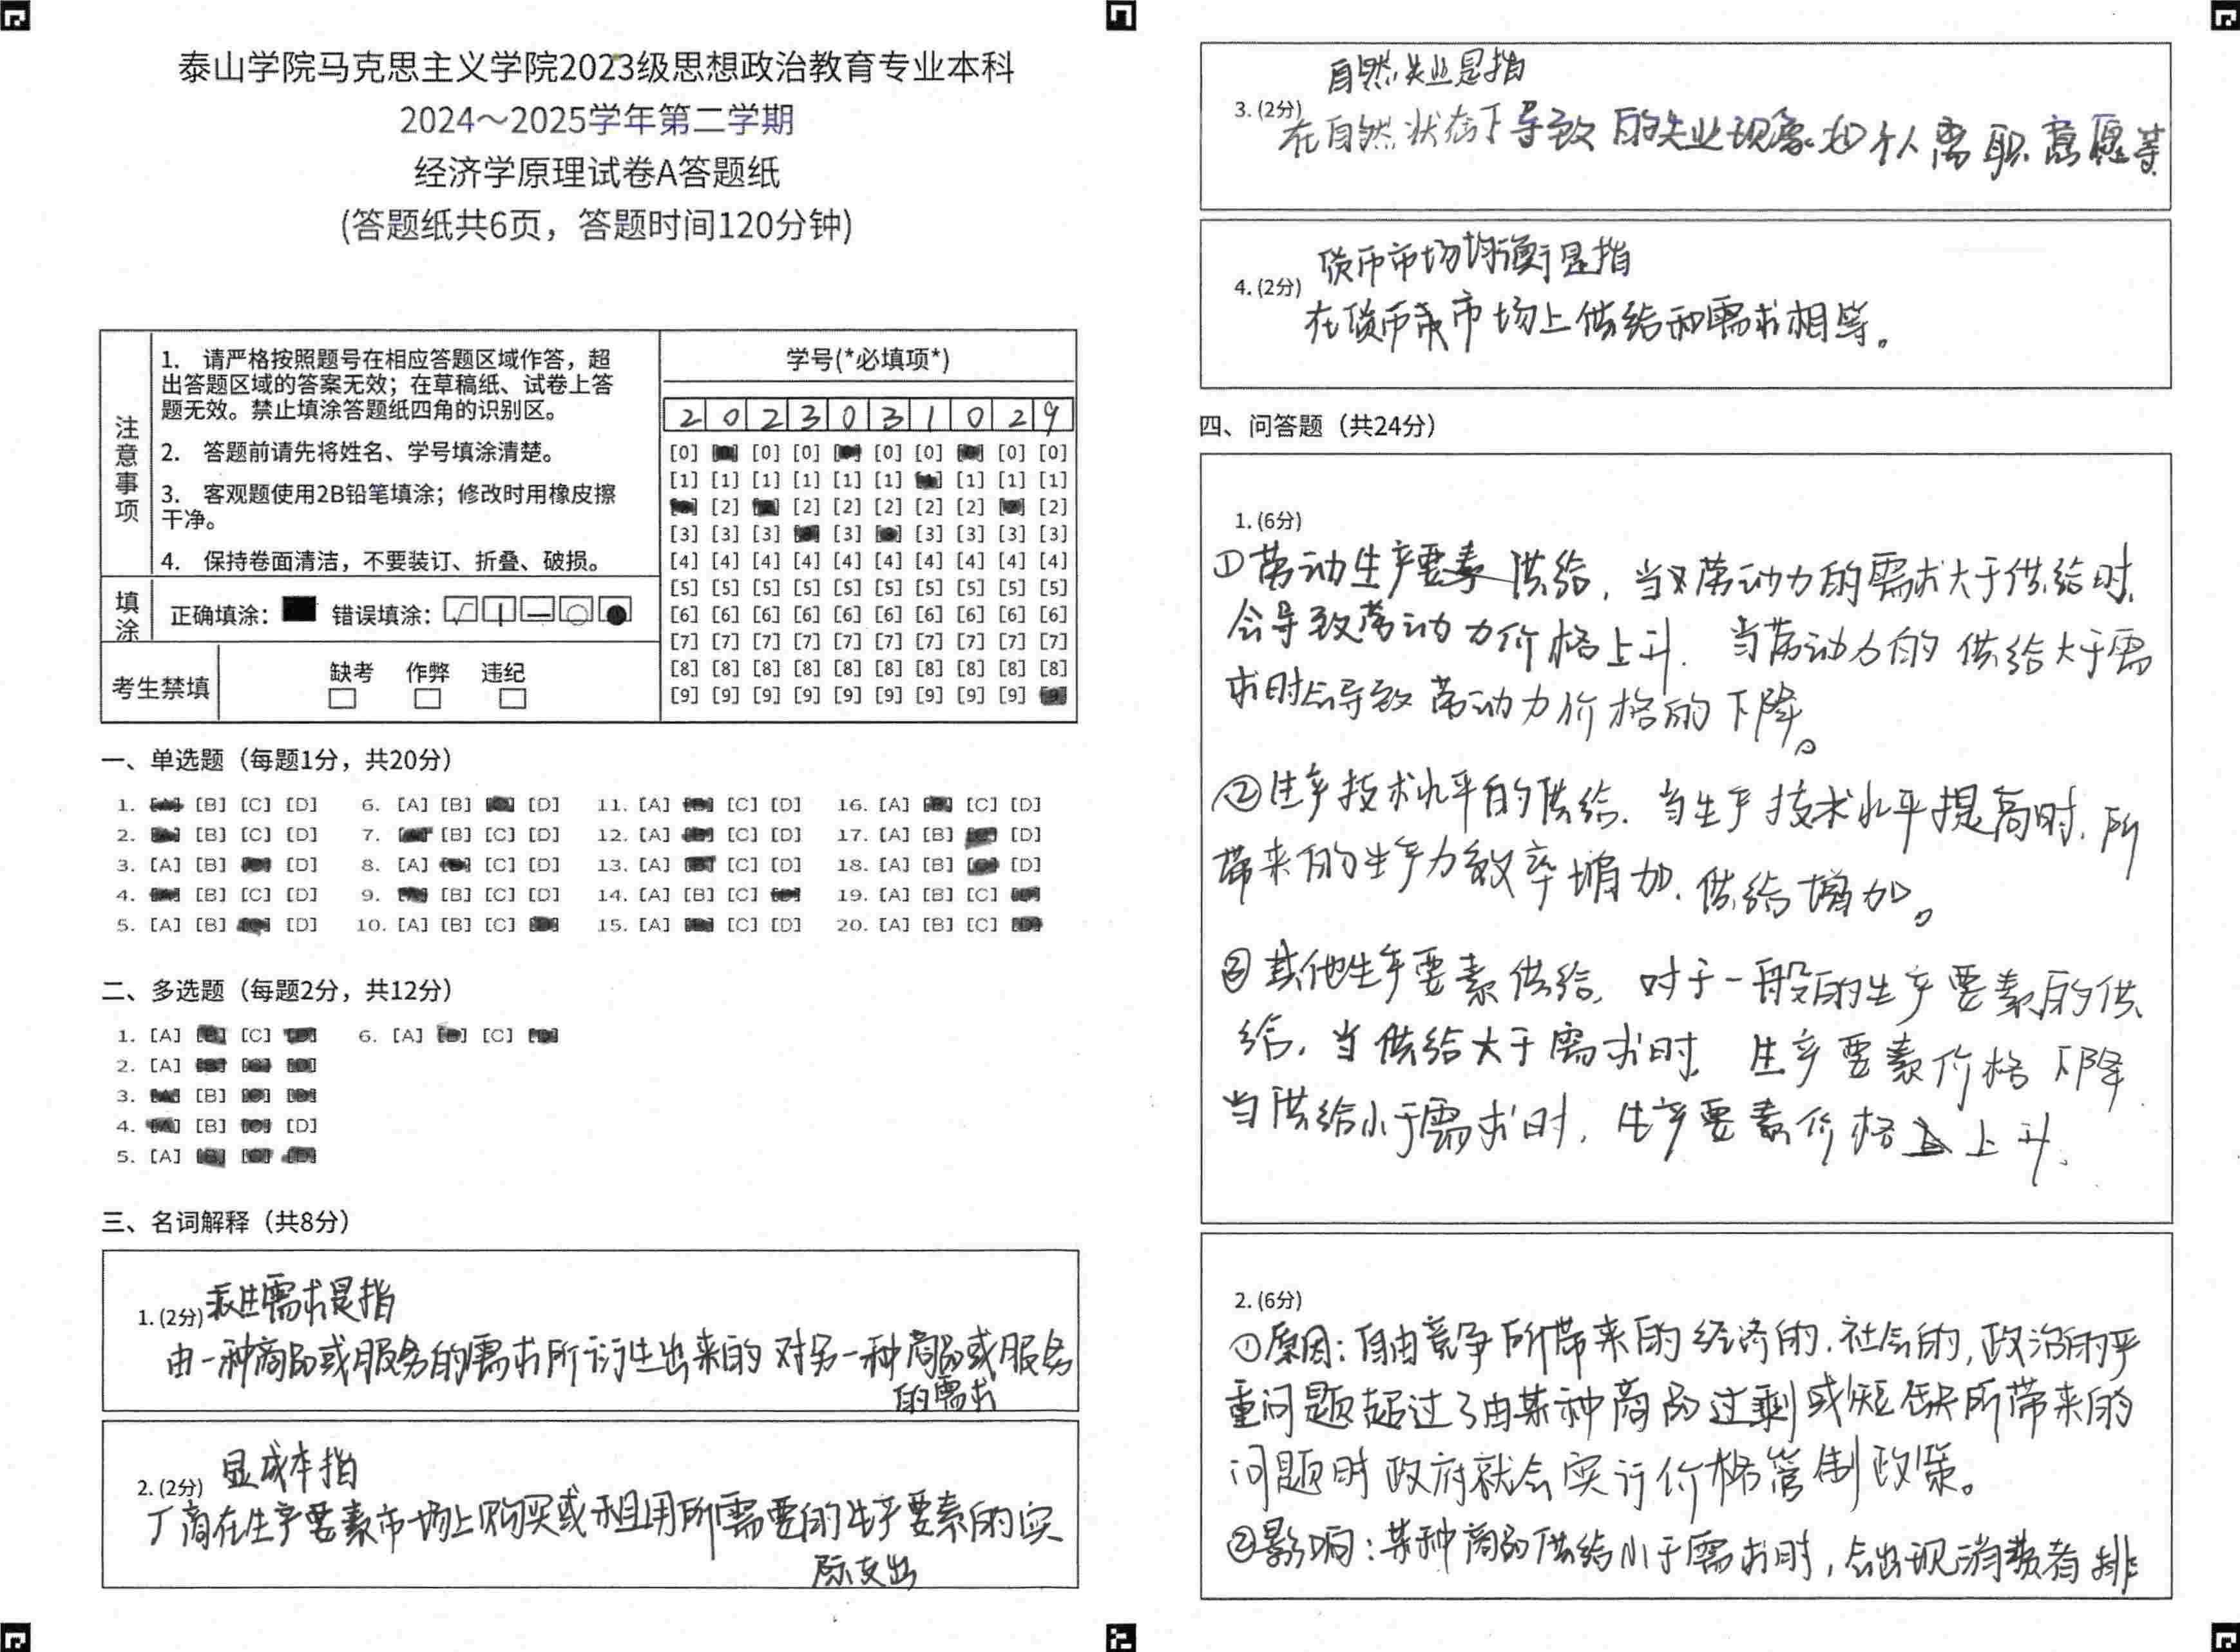 泰山学院马克思主义学院2023级思想政治教育专业本科
2024～2025学年第二学期
经济学原理试卷A答题纸
(答题纸共6页，答题时间120分钟)
注意事项
1. 请严格按照题号在相应答题区域作答，超
出答题区域的答案无效；在草稿纸、试卷上答
题无效。禁止填涂答题纸四角的识别区。
2. 答题前请先将姓名、学号填涂清楚。
3. 客观题使用2B铅笔填涂；修改时用橡皮擦
干净。
4. 保持卷面清洁，不要装订、折叠、破损。
填涂
正确填涂： 错误填涂：
考生禁填
缺考 作弊 违纪
学号(*必填项*)
2 0 2 3 0 3 1 0 2 9
[0] [0] [0] [0] [0] [0] [0]
[1] [1] [1] [1] [1] [1] [1] [1] [1]
[2] [2] [2] [2] [2] [2] [2]
[3] [3] [3] [3] [3] [3] [3] [3]
[4] [4] [4] [4] [4] [4] [4] [4] [4] [4]
[5] [5] [5] [5] [5] [5] [5] [5] [5] [5]
[6] [6] [6] [6] [6] [6] [6] [6] [6] [6]
[7] [7] [7] [7] [7] [7] [7] [7] [7] [7]
[8] [8] [8] [8] [8] [8] [8] [8] [8] [8]
[9] [9] [9] [9] [9] [9] [9] [9] [9]
一、单选题（每题1分，共20分）
1. [B] [C] [D] 6. [A] [B] [D] 11. [A] [C] [D] 16. [A] [C] [D]
2. [B] [C] [D] 7. [B] [C] [D] 12. [A] [C] [D] 17. [A] [B] [D]
3. [A] [B] [D] 8. [A] [C] [D] 13. [A] [C] [D] 18. [A] [B] [D]
4. [B] [C] [D] 9. [B] [C] [D] 14. [A] [B] [C] 19. [A] [B] [C]
5. [A] [B] [D] 10. [A] [B] [C] 15. [A] [C] [D] 20. [A] [B] [C]
二、多选题（每题2分，共12分）
1. [A] [C] 6. [A] [C]
2. [A]
3. [B]
4. [B] [D]
5. [A]
三、名词解释（共8分）
1. (2分) 派生需求是指
由一种商品或服务的需求所衍生出来的对另一种商品或服务
的需求
2. (2分) 显成本指
厂商在生产要素市场上购买或租用所需要的生产要素的实
际支出
自然失业是指
3. (2分)
在自然状态下导致的失业现象如个人离职意愿等
货币市场均衡是指
4. (2分)
在货币市场上供给和需求相等。
四、问答题（共24分）
1. (6分)
①劳动生产要素供给，当对劳动力的需求大于供给时，
会导致劳动力价格上升，当劳动力的供给大于需
求时会导致劳动力价格的下降。
②生产技术水平的供给，当生产技术水平提高时，所
带来的生产力效率增加，供给增加。
③其他生产要素供给，对于一般的生产要素的供
给，当供给大于需求时，生产要素价格下降
当供给小于需求时，生产要素价格上升.
2. (6分)
①原因：自由竞争所带来的经济的，社会的，政治的严
重问题超过了由某种商品过剩或短缺所带来的
问题时政府就会实行价格管制政策。
②影响：某种商品供给小于需求时，会出现消费者排